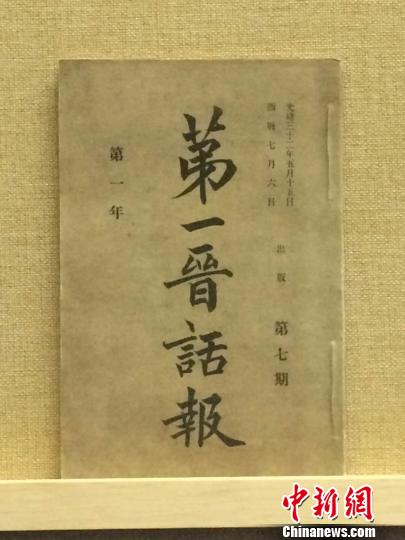 光緒三十二年五月十五日
西曆七月六日
出版
第七期
第一晉話報
第一年
中新網
Chinanews.com